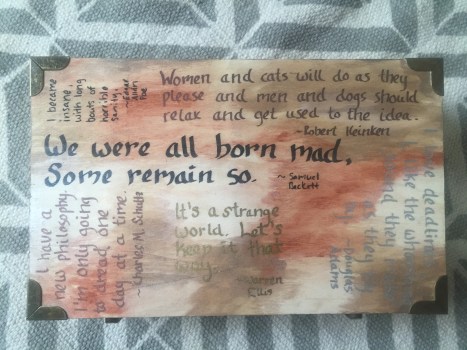 I became
insane,
with long
bouts of
horrible
sanity.
~Edgar
Allan
Poe
Women and cats will do as they
please and men and dogs should
relax and get used to the idea.
~Robert Heinken
We were all born mad,
Some remain so.
~ Samuel
Beckett
I have a
new philosophy
I'm only going
to dread one
day at a time.
~Charles M. Schultz
It's a strange
world. Let's
keep it that
way...
~Warren
Ellis
I love deadlines
like the whooshing
sound they
as they
by.
~Douglas
Adams